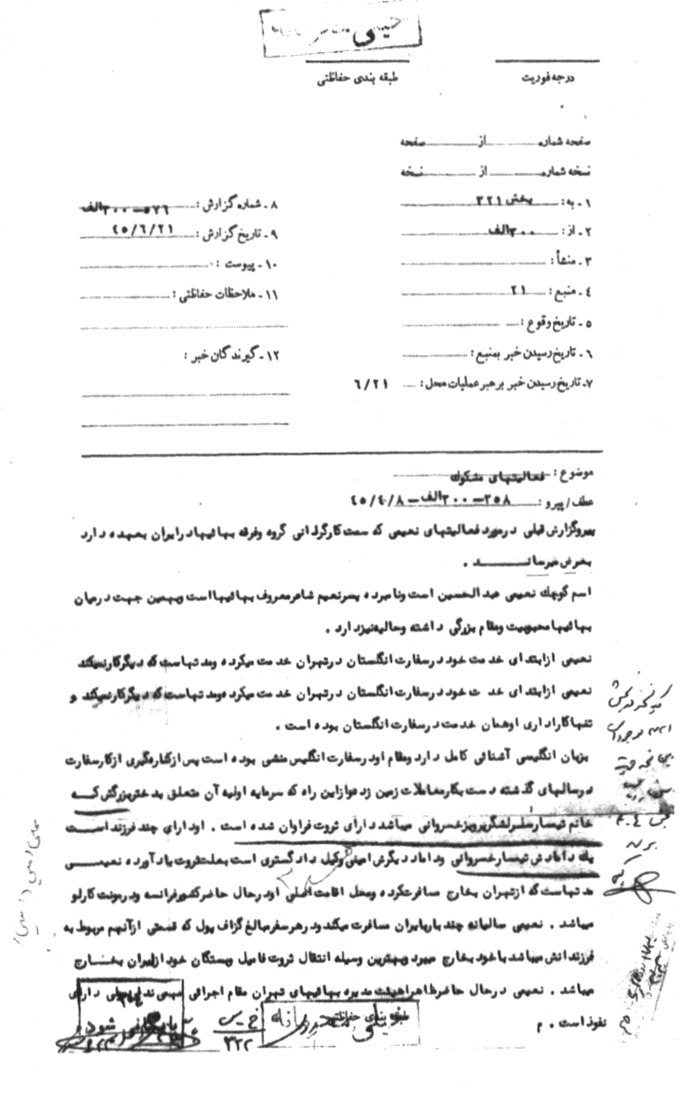 خیلی محرمانه
درجه فوریت
طبقه بندی حفاظتی
صفحه شماره از صفحه
نسخه شماره از نسخه
۱ـ به : بخش ۳۲۱
۲ـ از : ۳۰۰الف
۳ـ منشأ :
۴ـ منبع : ۲۱
۵ـ تاریخ وقوع :
۶ـ تاریخ رسیدن خبر بمنبع :
۷ـ تاریخ رسیدن خبر برهبر عملیات محل : ۶/۲۱
۸ـ شماره گزارش : ۵۷۶ـ۳۰۰الف
۹ـ تاریخ گزارش : ۴۵/۶/۲۱
۱۰ـ پیوست :
۱۱ـ ملاحظات حفاظتی :
۱۲ـ گیرندگان خبر :
موضوع : فعالیتهای مشکوک
عطف/پیرو : ۳۵۸ـ۳۰۰الف ـ ۴۵/۴/۸
پیروگزارش قبلی در مورد فعالیتهای نعیمی که سمت کارگردانی گروه وفرقه بهائیهادرایران بعهده دارد
بعرض میرساند .
اسم کوچک نعیمی عبدالحسین است ونامبرده پسرنعیم شاعرمعروف بهائیهااست وبهمین جهت درمیان
بهائیهامحبوبیت ومقام بزرگی داشته وحالیه نیزدارد .
نعیمی ازابتدای خدمت خود درسفارت انگلستان درتهران خدمت میکرده ومدتهاست که دیگرکارنمیکند
نعیمی ازابتدای خدمت خود درسفارت انگلستان درتهران خدمت میکرده ومدتهاست که دیگرکارنمیکند و
تنهاکاراداری اوهمان خدمت درسفارت انگلستان بوده است .
بزبان انگلیسی آشنائی کامل دارد ومقام اودرسفارت انگلیس منشی بوده است پس ازکناره‌گیری ازکارسفارت
درسالهای گذشته دست بکارمعاملات زمین زده وازاین راه که سرمایه اولیه آن متعلق به دختربزرگش که
خانم تیمسارسرلشگرپرویزخسروانی میباشد دارای ثروت فراوان شده است . اودارای چند فرزند است
یک دامادش تیمسارخسروانی وداماد دیگرش امینی وکیل دادگستری است بعلت ثروت یادآورده نعیمی
مدتهاست که ازتهران بخارج مسافرت کرده ومحل اقامت اصلی اودرحال حاضرکشورفرانسه ودرمونت کارلو
میباشد . نعیمی سالیانه چند باربایران مسافرت میکند ودرهرسفرمبالغ گزاف پول که قسمتی ازآنهم مربوط به
فرزندانش میباشد باخود بخارج میبرد وبهترین وسیله انتقال ثروت فامیل وبستگان خود ازایران بخارج
میباشد . نعیمی درحال حاضرظاهراهیئت مدیره بهائیهای تهران مقام اجرائی مهمی ندارد ولی دارای
نفوذ است . م
طبقه بندی حفاظتی
خیلی محرمانه
۳۲۲
بایگانی شود